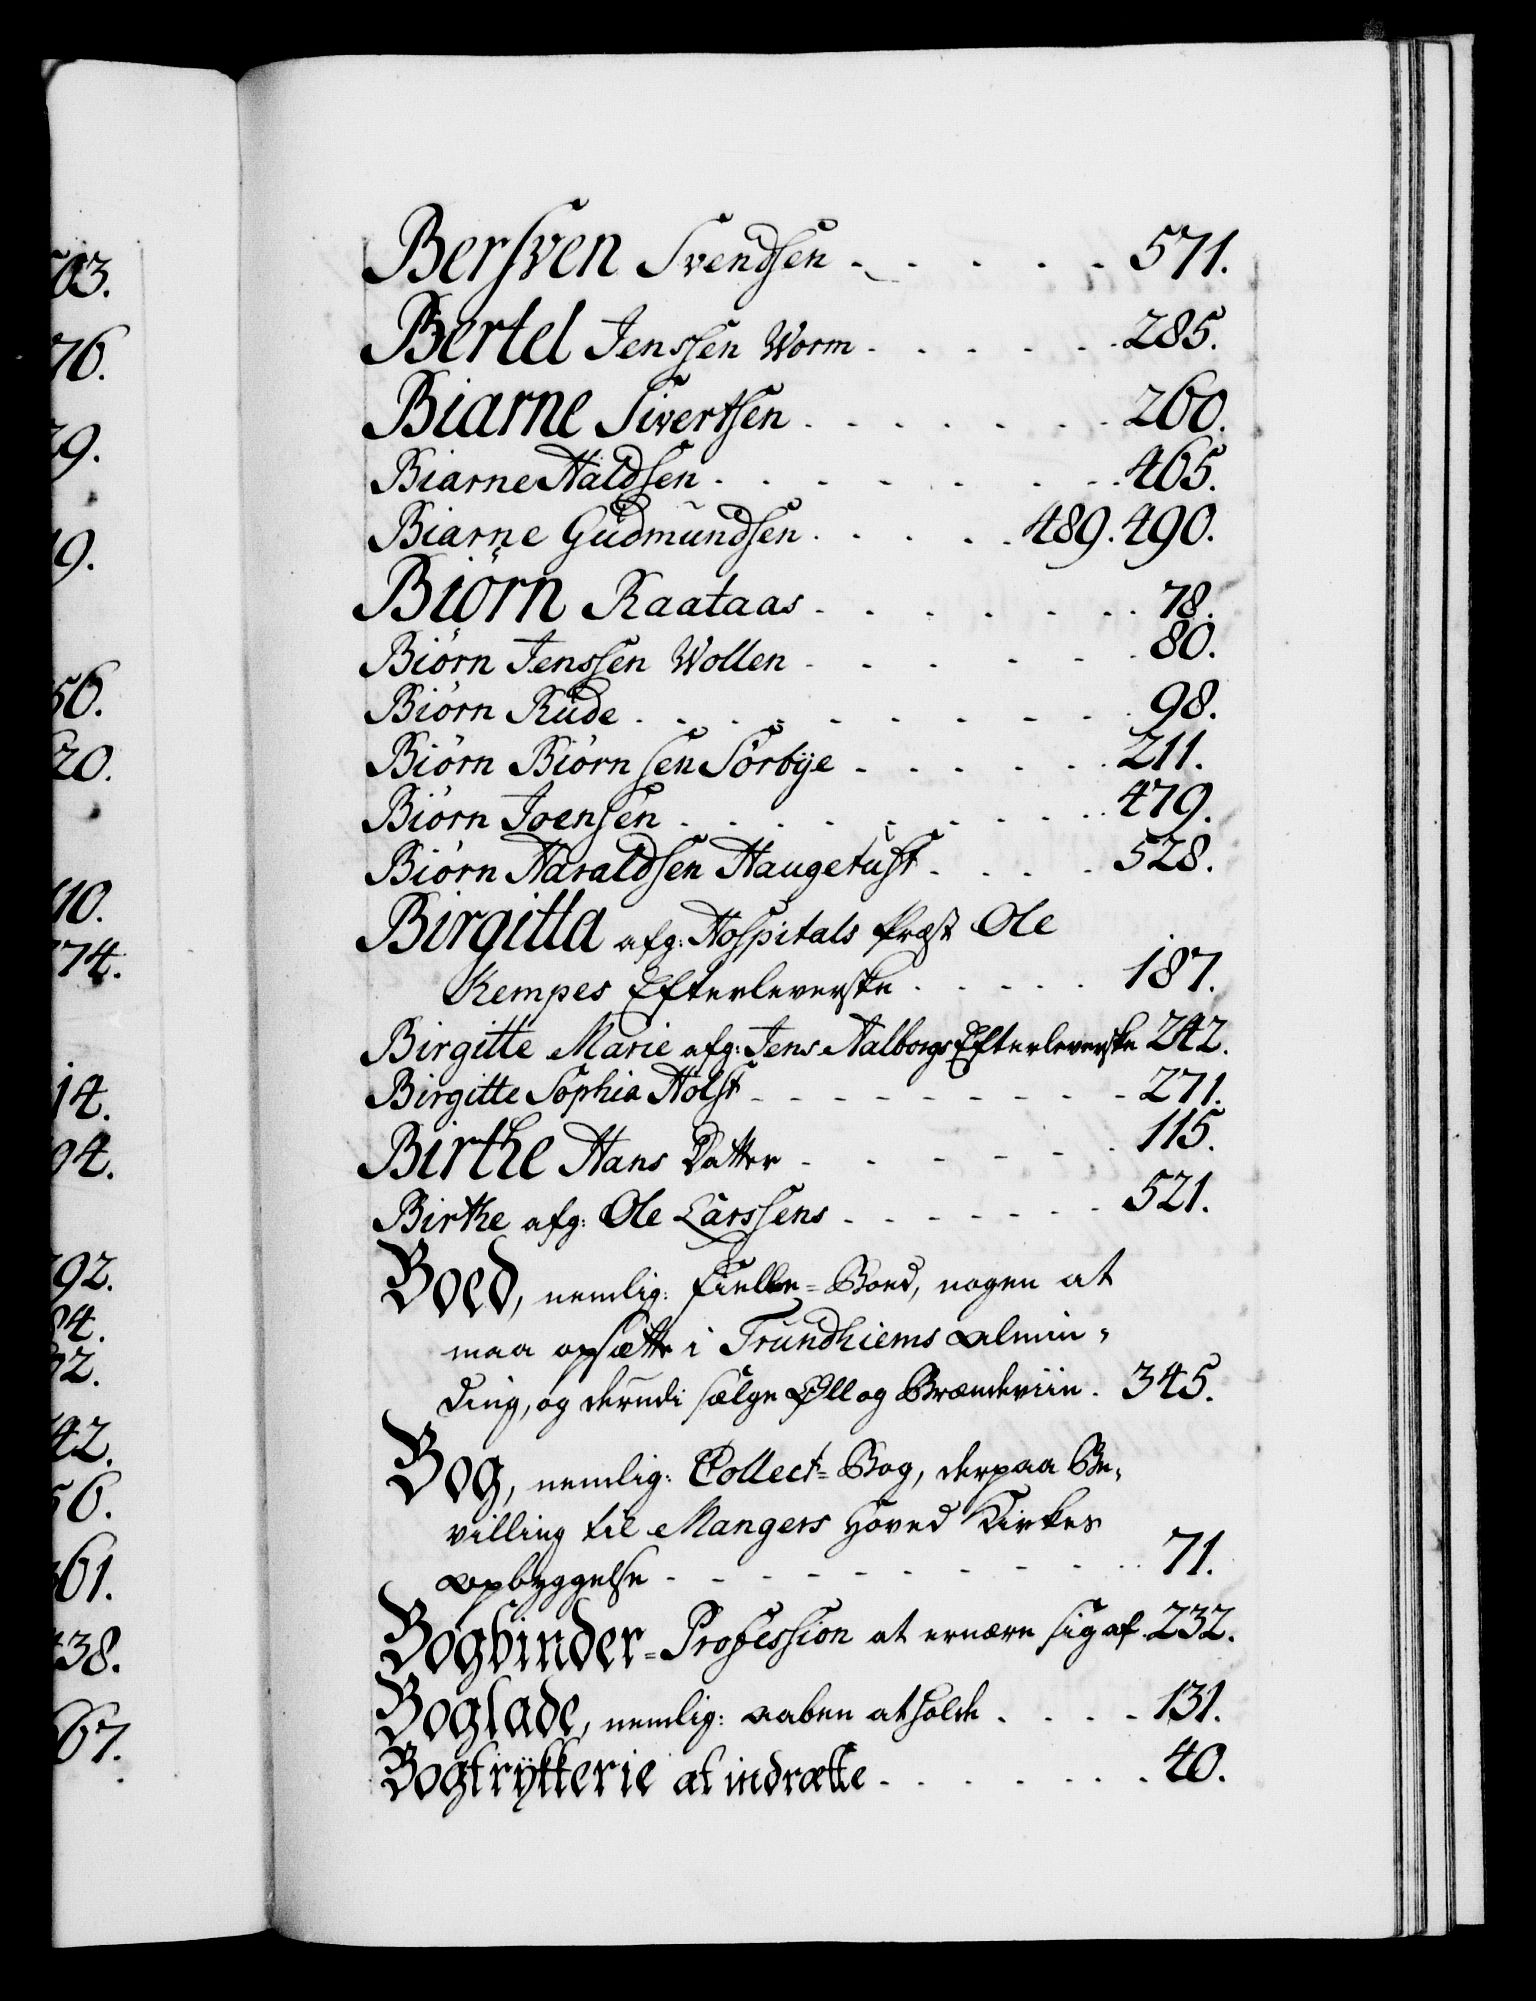 503.
76.
79.
19.
56.
20.
110.
174.
14.
94.
192.
84.
92.
142.
56.
361.
438.
567.
Bersven Svendsen - - - - - 571.
Bertel Jenssen Worm - - - - - 285.
Biarne Sivertsen - - - - - - 260.
Biarne Haldsen - - - - - - 465.
Biarne Gudmundsen - - - - - 489. 490.
Biörn Raataas - - - - - - 78.
Biörn Jenssen Wollen - - - - - - 80.
Biörn Rude - - - - - - - - 98.
Biörn Biörnsen Sörbye - - - - - 211.
Biörn Joensen - - - - - - - - 479.
Biörn Haraldsen Haugetust - - - - 528.
Birgitta afg: Hospitals Præst Ole
Kempes Efterleverske - - - - 187.
Birgitte Marie afg: Jens Aalborgs Efterleverske 242.
Birgitte Sophia Holst - - - - - - - 271.
Birthe Hans Datter - - - - - - 115.
Birthe afg: Ole Larssens - - - - - - 521.
Boed, nemlig: Fielle-Boed, nogen at
maa opsætte i Trundhiems Almin-
ding, og derudi sælge Øll og Brændeviin. 345.
Bog, nemlig: Collect-Bog, derpaa Be-
villing til Mangers Hoved Kirkes
Opbyggelse - - - - - - - - 71.
Bogbinder-Profession at ernære sig af 232.
Boglade, nemlig: aaben at holde - - - - 131.
Bogtrykkerie at indrætte - - - - - - 40.